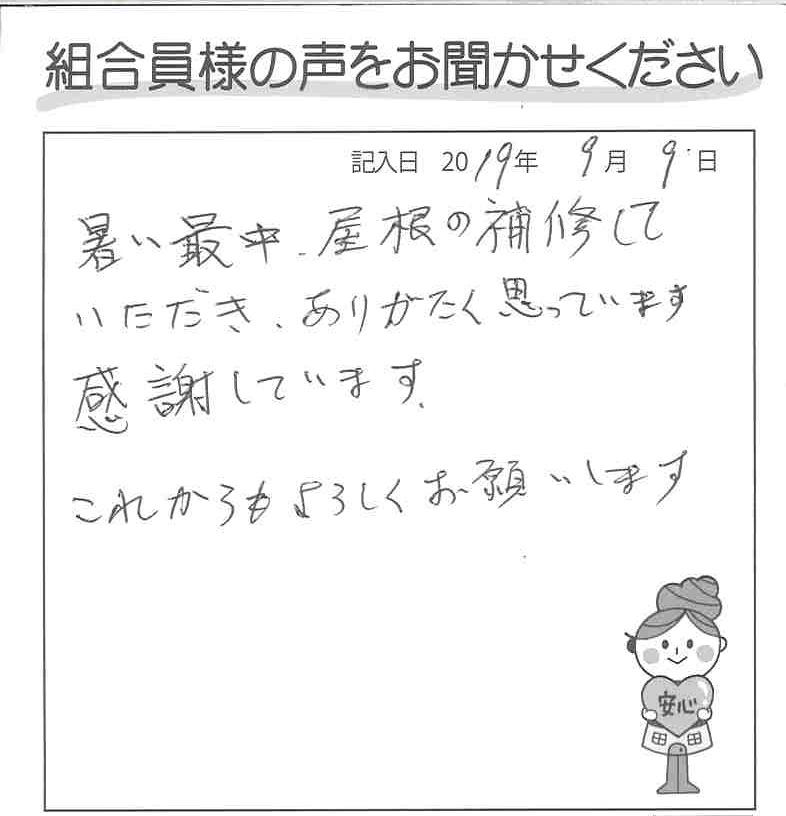 組合員様の声をお聞かせください
記入日 2019年 9月 9日
暑い最中、屋根の補修して
いただき、ありがたく思っています
感謝しています。
これからもよろしくお願いします
安心